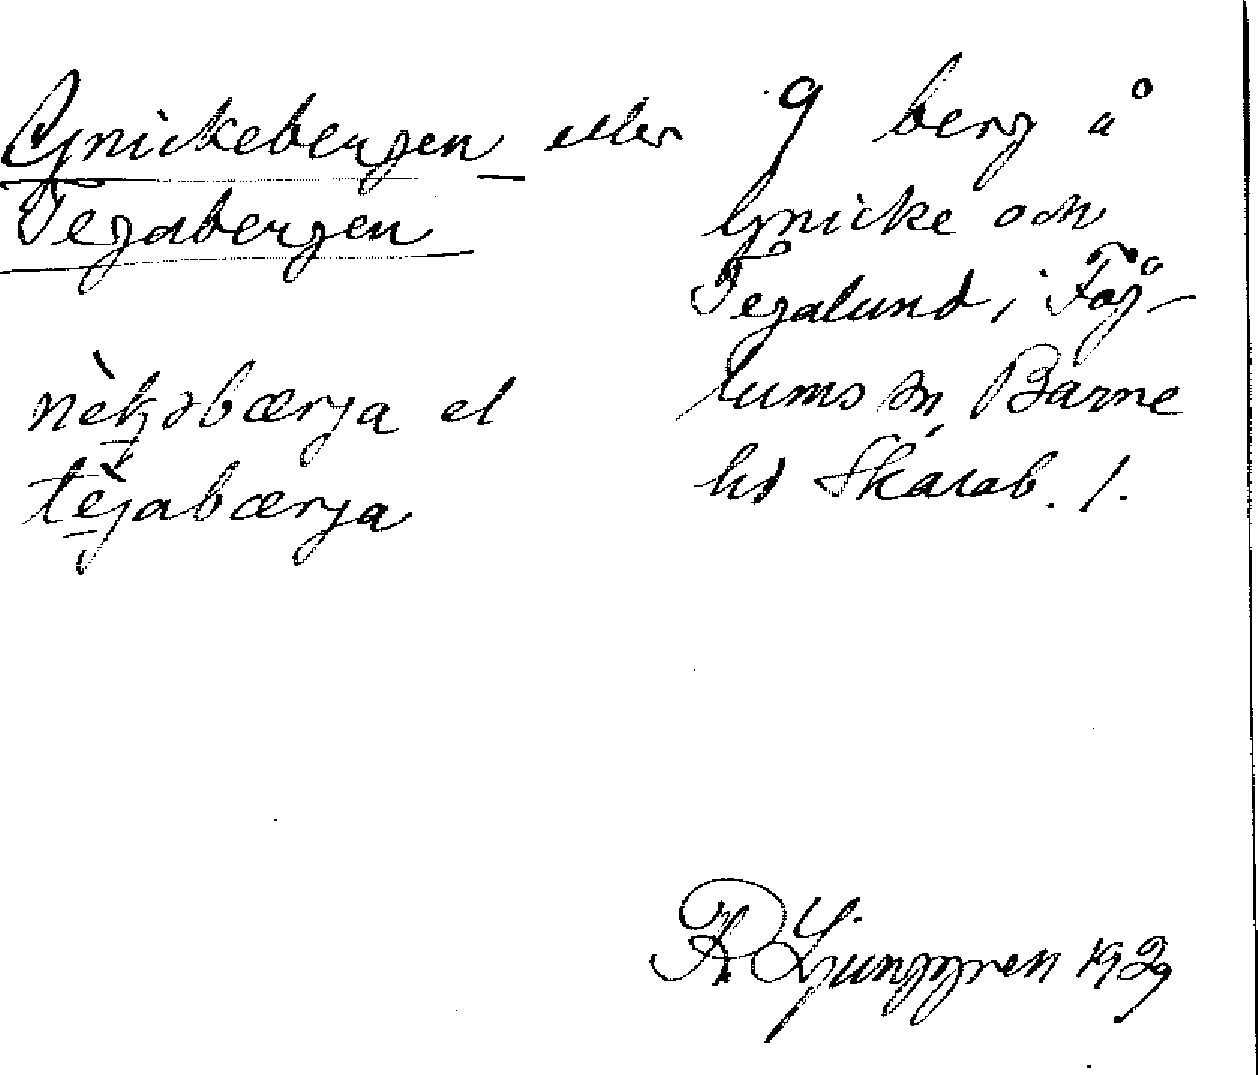 Gnickebergen eller
Tegabergen
nèkəbærja el
tèjabærja
9 berg å
Gnicke och
Tegalund, i Fåg-
lums sn, Barne
hd Skarab. l.
KR Ljunggren 1929